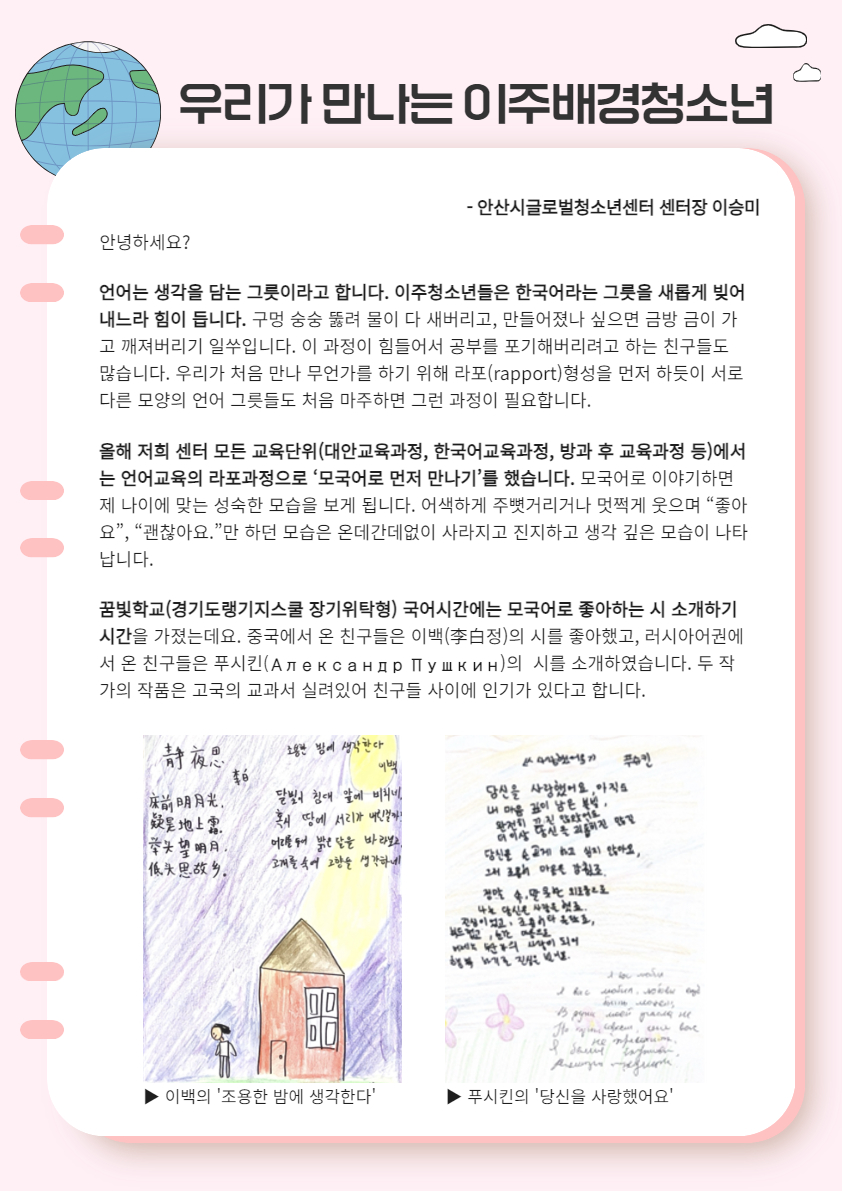 우리가 만나는 이주배경청소년
- 안산시글로벌청소년센터 센터장 이승미
안녕하세요?
언어는 생각을 담는 그릇이라고 합니다. 이주청소년들은 한국어라는 그릇을 새롭게 빚어
내느라 힘이 듭니다. 구멍 숭숭 뚫려 물이 다 새버리고, 만들어졌나 싶으면 금방 금이 가
고 깨져버리기 일쑤입니다. 이 과정이 힘들어서 공부를 포기해버리려고 하는 친구들도
많습니다. 우리가 처음 만나 무언가를 하기 위해 라포(rapport)형성을 먼저 하듯이 서로
다른 모양의 언어 그릇들도 처음 마주하면 그런 과정이 필요합니다.
올해 저희 센터 모든 교육단위(대안교육과정, 한국어교육과정, 방과 후 교육과정 등)에서
는 언어교육의 라포과정으로 ‘모국어로 먼저 만나기’를 했습니다. 모국어로 이야기하면
제 나이에 맞는 성숙한 모습을 보게 됩니다. 어색하게 주뼛거리거나 멋쩍게 웃으며 “좋아
요”, “괜찮아요.”만 하던 모습은 온데간데없이 사라지고 진지하고 생각 깊은 모습이 나타
납니다.
꿈빛학교(경기도랭기지스쿨 장기위탁형) 국어시간에는 모국어로 좋아하는 시 소개하기
시간을 가졌는데요. 중국에서 온 친구들은 이백(李白정)의 시를 좋아했고, 러시아어권에
서 온 친구들은 푸시킨(Александр Пушкин)의 시를 소개하였습니다. 두 작
가의 작품은 고국의 교과서 실려있어 친구들 사이에 인기가 있다고 합니다.
靜夜思
李白
床前明月光,
疑是地上霜.
举头望明月,
低头思故乡.
조용한 밤에 생각한다
이백
달빛이 침대 앞에 비취네
혹시 땅에 서리가
머리를 들어 밝은 달을 바라보고
고개를 숙여 고향을 생각하네
푸슈킨
당신을 사랑했어요, 아직도
내 마음 깊이 남은 불빛,
완전히 꺼진 않았어요
더 이상 당신을
당신을 슬프게 하고 싶지 않아요,
정말
나는 당신을 사랑을 했죠
▶ 이백의 '조용한 밤에 생각한다'
▶ 푸시킨의 '당신을 사랑했어요'